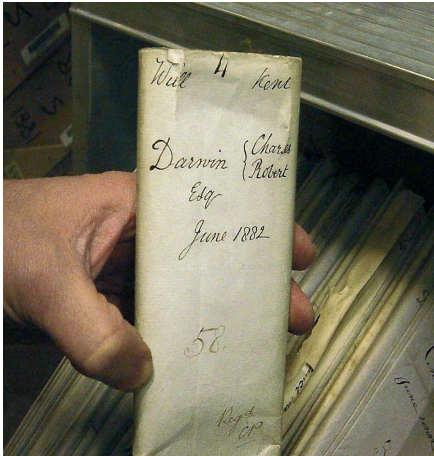 Will 4 Kent
Darwin { Charles
Robert
Esq
June 1882
58.
Regd